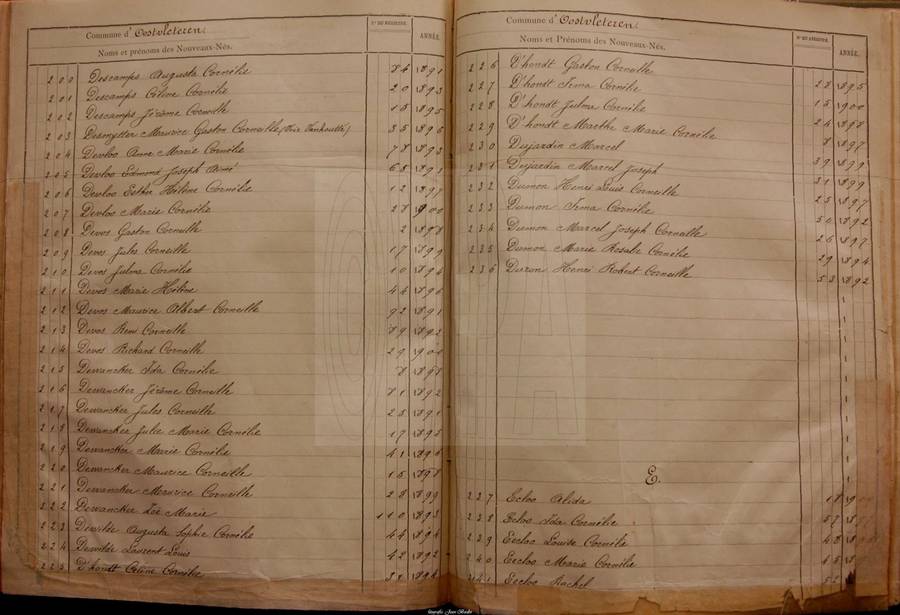 Commune d' Oostvleteren
N° DU REGISTRE.
ANNÉE.
Noms et prénoms des Nouveaux-Nés.
200 Descamps Augusta Cornélie 84 1891
201 Descamps Céline Cornélie 20 1893
202 Descamps Jérôme Corneille 15 1895
203 Desmytter Maurice Gaston Corneille 35 1896
204 Devloo Anne Marie Cornélie 78 1893
205 Devloo Edmond Joseph Aimé 65 1891
206 Devloo Esther Hélène Cornélie 12 1897
207 Devloo Marie Cornélie 27 900
208 Devos Gaston Corneille 2 1898
209 Devos Jules Corneille 17 1899
210 Devos Julma Cornélie 10 1894
211 Devos Marie Hélène 44 1896
212 Devos Maurice Albert Corneille 92 1891
213 Devos Remi Corneille 89 1892
214 Devos Richard Corneille 29 900
215 Dewancker Ida Cornélie 8 1898
216 Dewancker Jérôme Corneille 81 1892
217 Dewancker Jules Corneille 25 1891
218 Dewancker Julie Marie Cornélie 17 1895
219 Dewancker Marie Cornélie 41 1896
220 Dewancker Maurice Corneille 15 1898
221 Dewancker Maurice Corneille 28 1899
222 Dewancker Marie 110 1893
223 Dewilde Augusta Sophie Cornélie 44 1894
224 Dewilde Laurent Louis 42 1892
225 D'hondt Céline Cornélie 32 1894
Commune d' Oostvleteren
N° DU REGISTRE.
ANNÉE.
Noms et Prénoms des Nouveaux-Nés.
226 D'hondt Gaston Corneille 23 1895
227 D'hondt Irma Cornélie 15 900
228 D'hondt Julma Cornélie 24 1898
229 D'hondt Marthe Marie Cornélie 8 1897
230 Dujardin Marcel 39 1899
231 Dujardin Marcel Joseph 31 1899
232 Dumon Henri Louis Corneille 25 1897
233 Dumon Irma Cornélie 50 1892
234 Dumon Marcel Joseph Corneille 26 1897
235 Dumon Marie Rosalie Cornélie 29 1894
236 Duron Henri Robert Corneille 53 1892
E.
237 Ecloo Alida 18
238 Ecloo Ida Cornélie 57
239 Eecloo Louise Cornélie 48
240 Eecloo Marie Cornélie 65
241 Eecloo Rachel 52